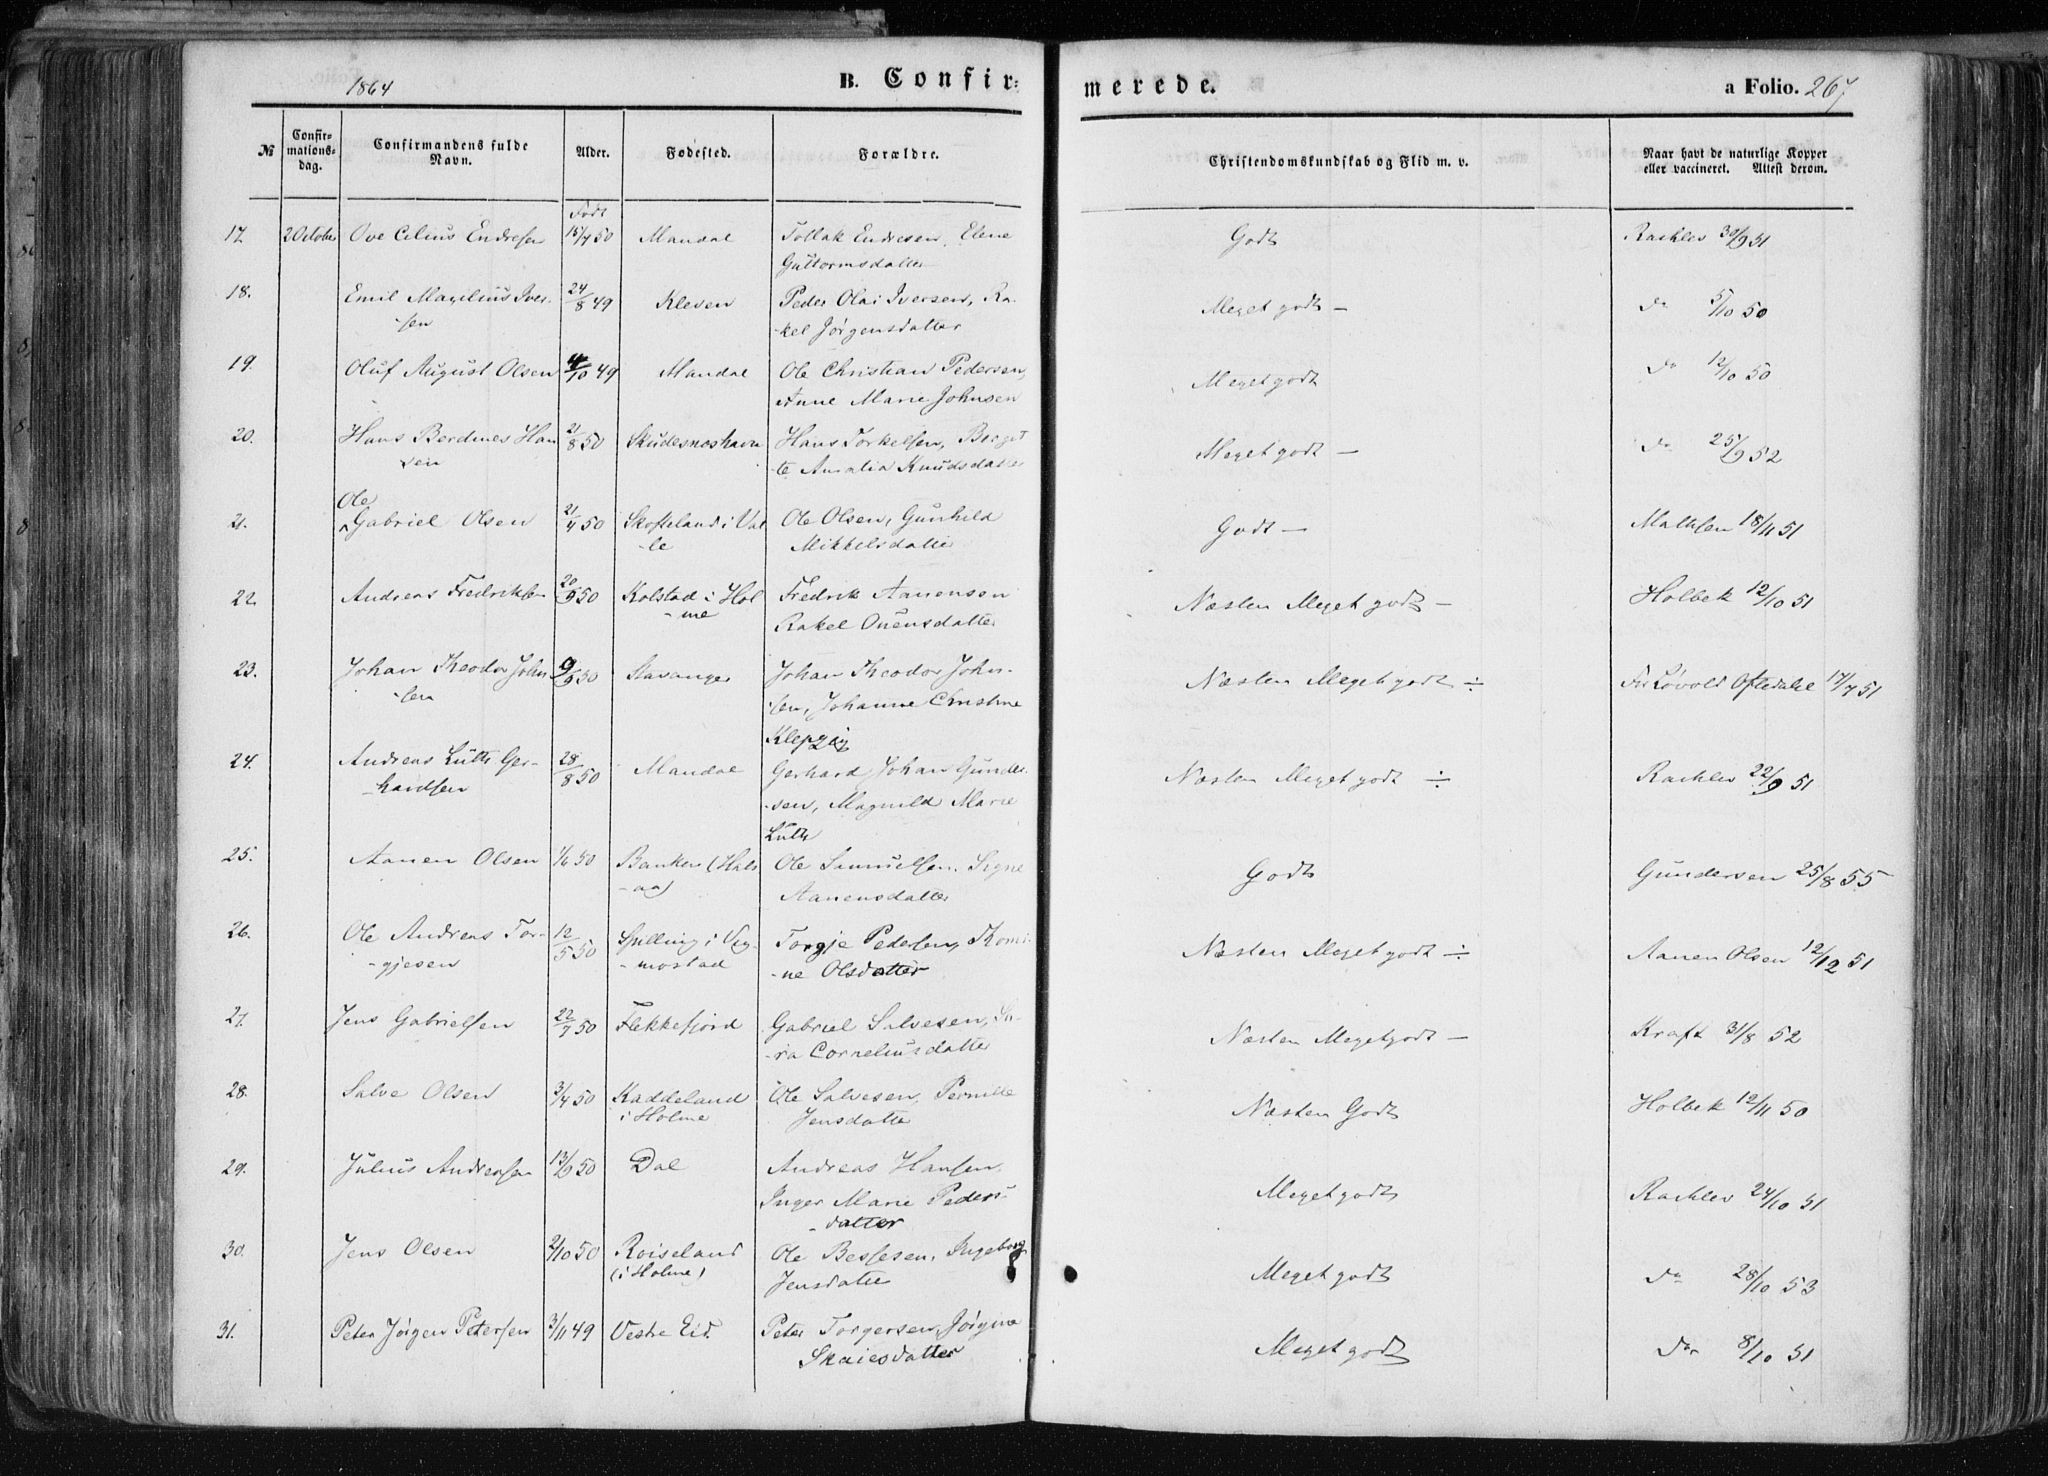 1864 B. Confir- merede. a Folio. 267
№ Confirmationsdag. Confirmandens fulde Navn. Alder. Fødested. Forældre. Christendomskundskab og Flid m. v. Naar havt de naturlige Kopper eller vaccineret. Attest derom.
Født
17. 2 October Ove Cilius Endresen 15/7 50 Mandal Tollak Endresen, Elene Godt Rachlev 30/9 51
Guttormsdatter
18. Emil Magilius Iver- 24/8 49 Kleven Peder Olai Iversen, Ra- Meget godt – do 5/10 50
sen -kel Jørgensdatter
19. Oluf August Olsen 4/10 49 Mandal Ole Christian Pedersen, Meget godt do 12/10 50
Anne Marie Johnsen
20. Hans Berdines Han 21/8 50 Skudesneshavn Hans Torkelsen, Berget Meget godt – do 25/9 52
sen te Amalia Knudsdatter
Ole
21. Gabriel Olsen 21/4 50 Skofteland i Val Ole Olsen, Gunhild Godt – Mathsen 18/11 51
-le Mikkelsdatter
22. Andreas Fredriksen 20/9 50 Kolstad i Hol Fredrik Aanensen Næsten Meget godt – Holbek 12/10 51
-me Rakel Ouensdatter
23. Johan Theodor John 9/9 50 Stavanger Johan Theodor John- Næsten Meget godt ÷ Fr Løvold Oftedahl 17/7 51
-sen -sen, Johanne Christine
Klepzig
24. Andreas Lütth Ger- 28/8 50 Mandal Gerhard Johan Gunder- Næsten Meget godt ÷ Rachlev 22/9 51
-hardsen -sen, Magnild Marie
Lütth
25. Aanen Olsen 1/6 50 Banken (Hals Ole Samuelsen, Signe Godt Gundersen 25/8 55
-aa) Aanensdatter
26. Ole Andreas Tor- 12/5 50 Spilling i Vig- Torgje Pedersen, Thomi- Næsten Meget godt ÷ Aanen Olsen 12/12 51
-gjesen -mostad -ne Olsdatter
27. Jens Gabrielsen 22/7 50 Flekkefjord Gabriel Salvesen, Sa- Næsten Meget godt – Kraft 31/8 52
-ra Corneliusdatter
28. Salve Olsen 3/4 50 Kaddeland Ole Salvesen, Pernille Næsten Godt Holbek 12/11 50
i Holme Jensdatter
29. Julius Andreasen 13/9 50 Dal Andreas Hansen, Meget godt Rachlev 24/10 51
Inger Marie Peders-
-datter
30. Jens Olsen 2/10 50 Roiseland Ole Bessesen, Ingeborg Meget godt do 28/10 53
(i Holme) Jensdatter
31. Peter Jørgen Petersen 3/11 49 Vestre Eid. Peter Torgersen, Jørgine Meget godt do 8/10 51
Skaiesdatter